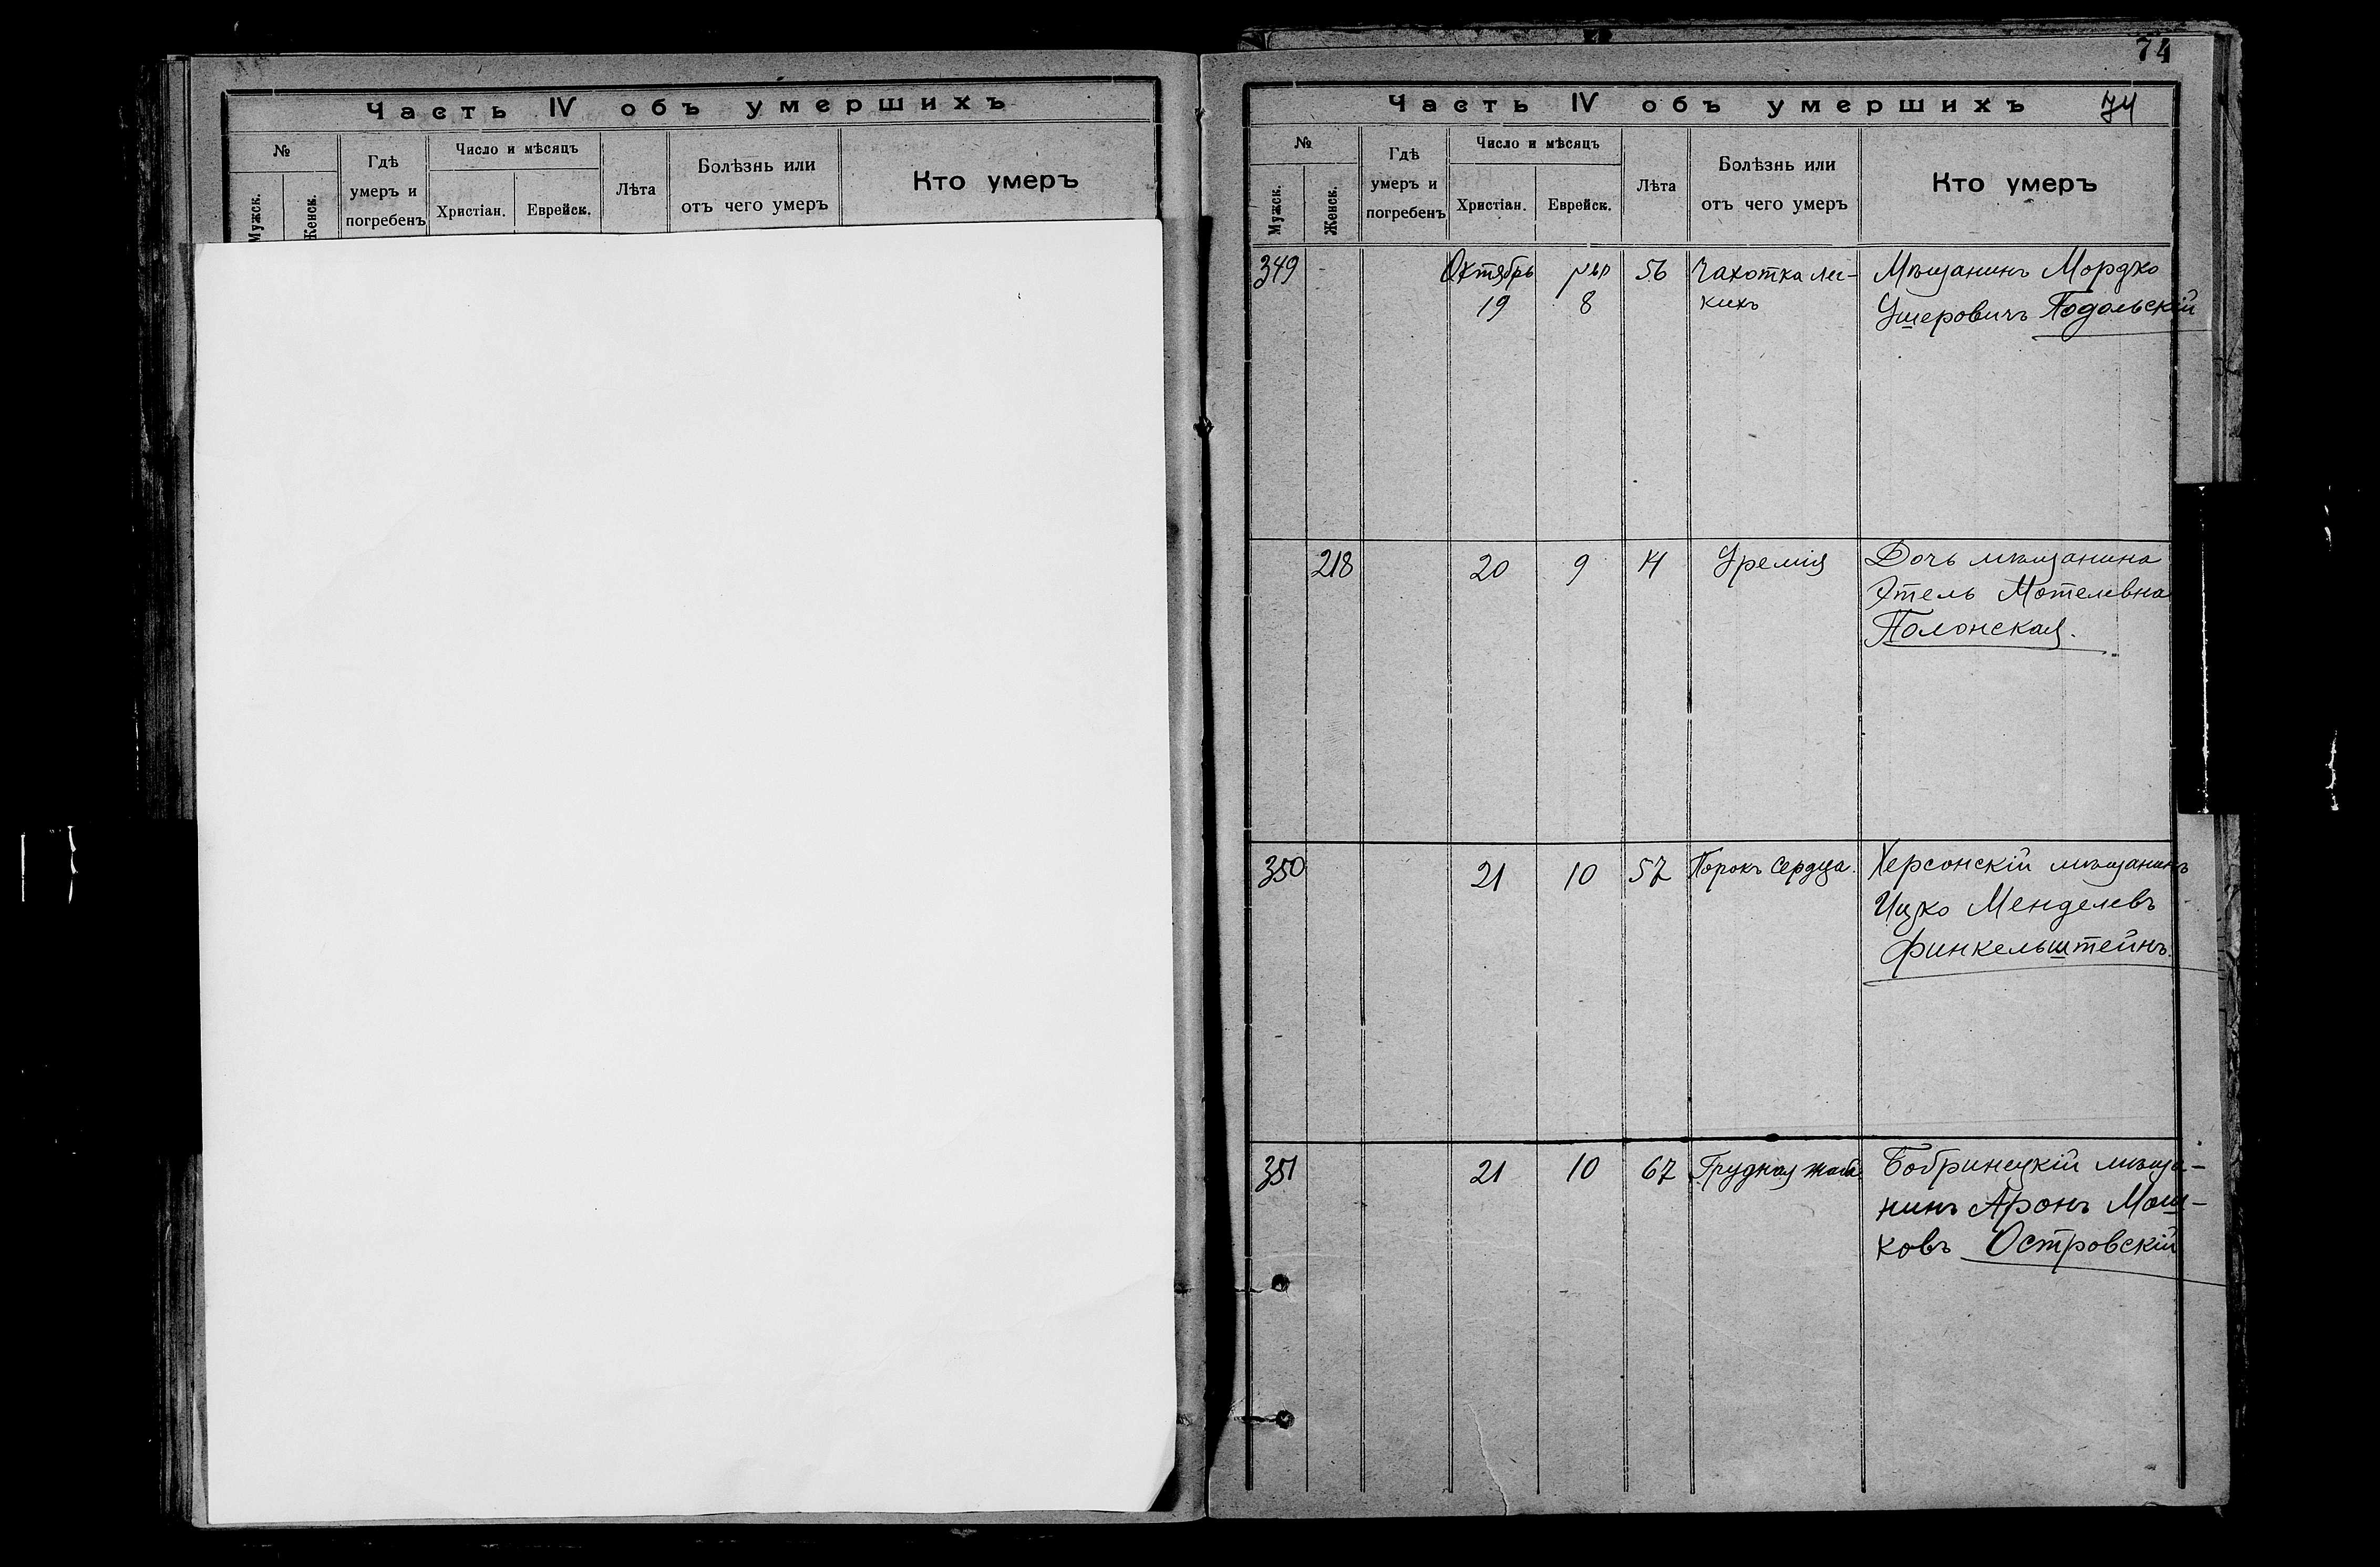 Часть IV объ умершихъ
№
Мужск.
Женск.
Гдѣ
умеръ и
погребенъ
Число и мѣсяцъ
Христіан.
Еврейск.
Лѣта
Болѣзнь или
отъ чего умеръ
Кто умеръ
74
Часть IV объ умершихъ 74
№
Мужск.
Женск.
Гдѣ
умеръ и
погребенъ
Число и мѣсяцъ
Христіан.
Еврейск.
Лѣта
Болѣзнь или
отъ чего умеръ
Кто умеръ
349
Октябрь
19
8
56
Чахотка лег-
кихъ
Мѣщанинъ Мордко
Ушеровичъ Подольскій
218
20
9
Уремія
Дочь мѣщанина
Этель Мотелевна
Полонская.
350
21
10
57
Порокъ сердца.
Херсонскій мѣщанинъ
Ицко Менделевъ
Финкельштейнъ.
351
21
10
67
Грудная жаба
Бобринецкій мѣща-
нинъ Аронъ Мош-
ковъ Островскій